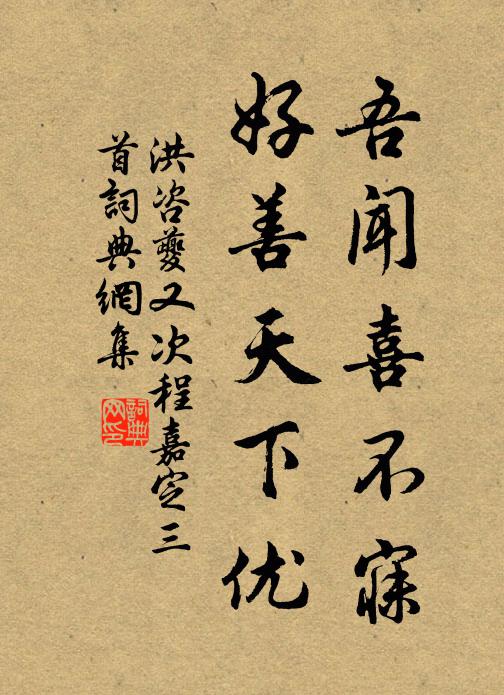 吾闻喜不寐
好善天下优
洪咨夔又次程嘉定三
首词典网集
词典
网印